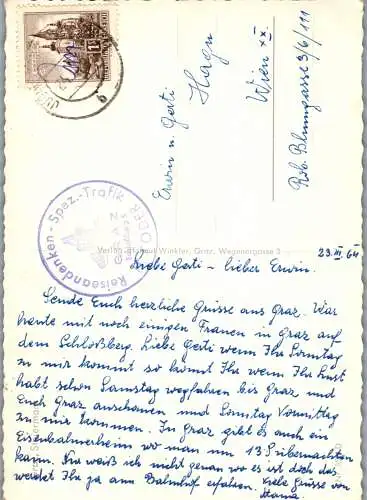 Erwin u. Gerti
Hagn
Wien XX
Rob. Blumgasse 3/6/111
Reiseandenken - Spez.-Trafik
GRAZ
Verlag Helmut Winkler, Graz, Wegenergasse 3
23. III 64
Liebe Gerti - lieber Erwin.
Sende Euch herzliche Grüsse aus Graz. War
heute mit noch einigen Frauen in Graz auf
dem Schloßberg. Liebe Gerti wenn Ihr Sonntag
zu mir kommt so könnt Ihr wenn Ihr Lust
habt schon Samstag wegfahren bis Graz und
Euch Graz anschauen und Sonntag Vormittag
zu mir kommen. In Graz gibt es auch ein
Eisenbahnerheim wo man um 13 S übernachten
kann. Nur weiß ich nicht genau wo es ist doch das
werdet Ihr ja am Bahnhof erfahren. Viele Grüsse von
Mama